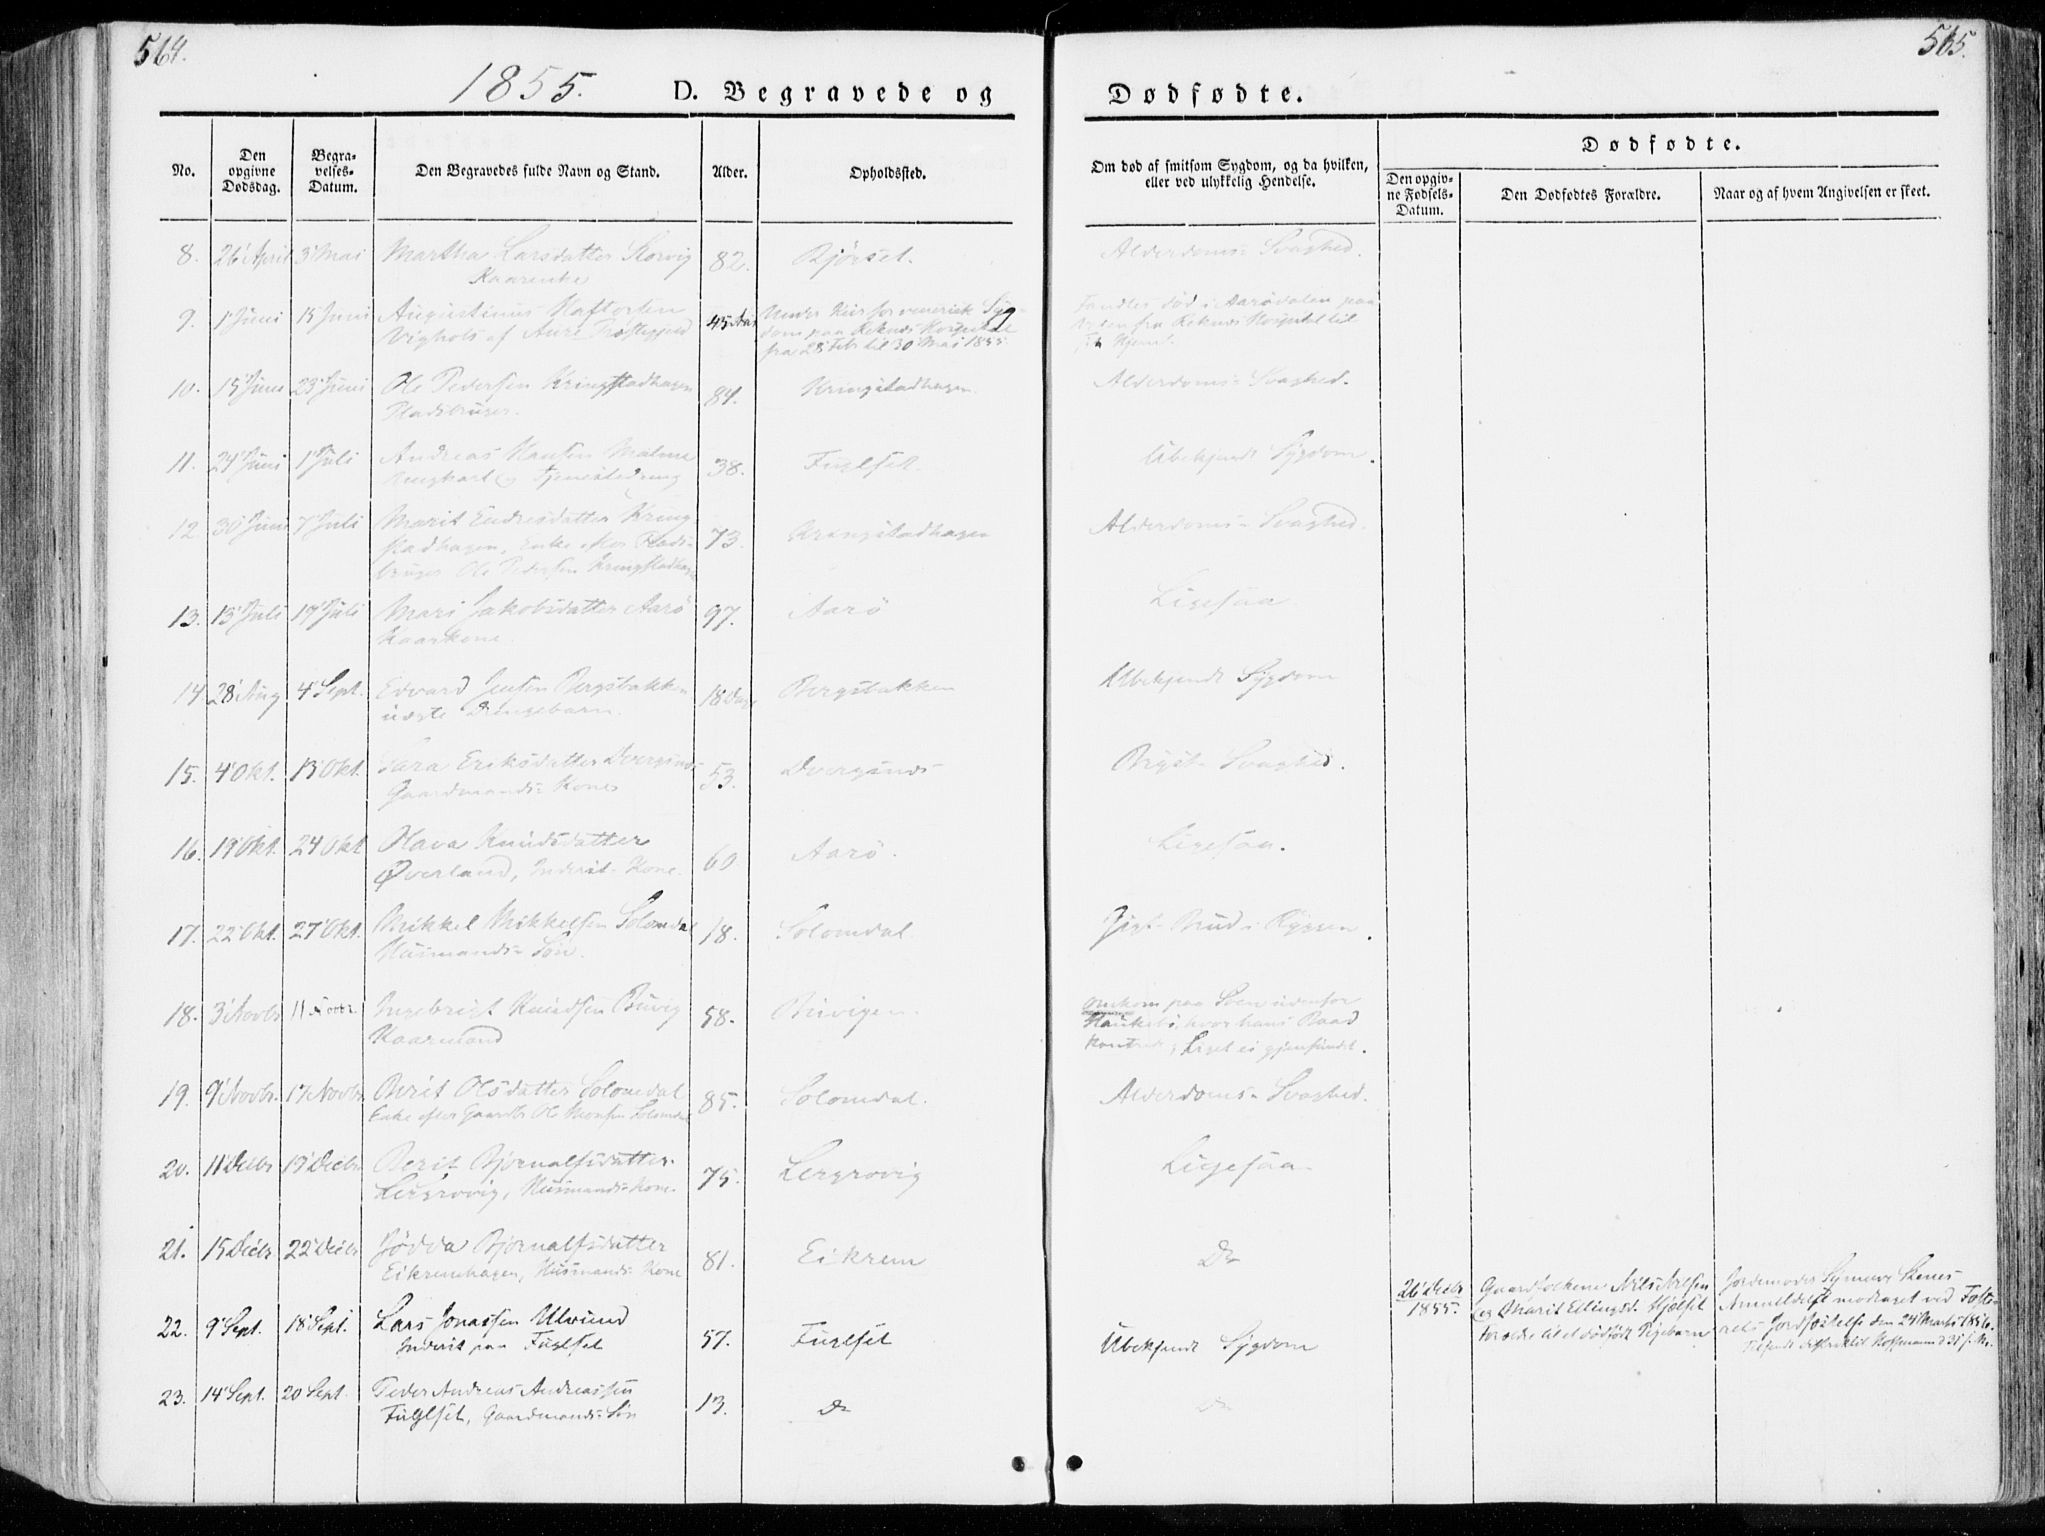 564.
565.
1855.
D. Begravede og
Dødfødte.
No.
Den opgivne Dødsdag.
Begravelses-Datum.
Den Begravedes fulde Navn og Stand.
Alder.
Opholdssted.
Om død af smitsom Sygdom, og da hvilken,
eller ved ulykkelig Hendelse.
Dødfødte.
Den opgivne Fødsels-Datum.
Den Dødfødtes Forældre.
Naar og af hvem Angivelsen er skeet.
8. 26 April 3 Mai Martha Larsdatter 82. Bjørset. Alderdoms- Svaghed.
9. 1 Juni 15 Juni Augustinus 45 Under Kur for venerisk Syg- Fandtes død i Aarødalen paa
af Aure dom paa Reknes Hospital fra Reknes Hospital til
fra 28 Feb til 30 Mai 1855. Hjem.
10. 15 Juni 23 Juni Ole Pedersen Kringstadhagen 84. Kringstadhagen. Alderdoms- Svaghed.
Pladsbruger.
11. 24 Juni 1 Juli Andreas Hansen Malme 38. Fuglset. Ubekjendt Sygdom.
Ungkarl og Tjenestedreng
12 30 Juni 7 Juli Marit Endresdatter Kring- 73. Kringstadhagen Alderdoms- Svaghed.
stadhagen, Enke efter Plads-
bruger Ole Pedersen Kringstadhagen
13. 13 Juli 19 Juli Mari Jakobsdatter Aarø 97. Aarø Ligesaa.
Kaarkone.
14 28 Aug 4 Sept. Edvard Jensen Bergsbakken 18 Dage Bergsbakken Ubekjendt Sygdom
uægte Drengebarn.
15. 4 Okt. 13 Okt. Sara Eriksdatter Dvergsnes 53. Dvergsnes Bryst- Svaghed.
Gaardmands- Kone
16. 19 Okt. 24 Okt Olava Knudsdatter 60 Aarø. Ligesaa.
Øverland, Inderst- Kone.
17. 22 Okt. 27 Okt. Mikkel Mikkelsen Solomdal 18. Solomdal. Gigt- Brud i Ryggen.
Husmands- Søn.
18. 3 Novbr 11 Novbr. Ingebrigt Knudsen Buvig 58. Buvigen. Omkom paa Søen udenfor
Kaarmand hvor hans Baad
Liget ei gjenfundet.
19. 9 Novbr. 17 Novbr Berit Olsdatter Solomdal 85. Solomdal. Alderdoms- Svaghed.
Enke efter Gaardbr Ole Monsen Solomdal
20. 11 Decbr 19 Decbr Berit Bjørnalfsdatter 75. Lergrovig Ligesaa
Lergrovig, Husmands- Kone.
21. 15 Decbr 22 Decbr Jødda Bjørnalfsdatter 81. Eikrem Do
Eikremhagen, Husmands- Kone
26 Decbr Gaardfolkene Nils Nilsen Jordemoder Synneve
1855. og Marit Ellingsd. Hjelset modtaget ved Foste-
Forældre til et dødfødt Pigebarn rets Jordfæstelse den 24 Marts 1856.
22. 9 Sept. 18 Sept. Lars Jonassen Ulvund 57. Fuglset Ubekjendt Sygdom
Inderst paa Fuglset
23. 14 Sept. 20 Sept. Peder Andreas Andreassen 13. Do Do
Fuglset, Gaardmands- Søn